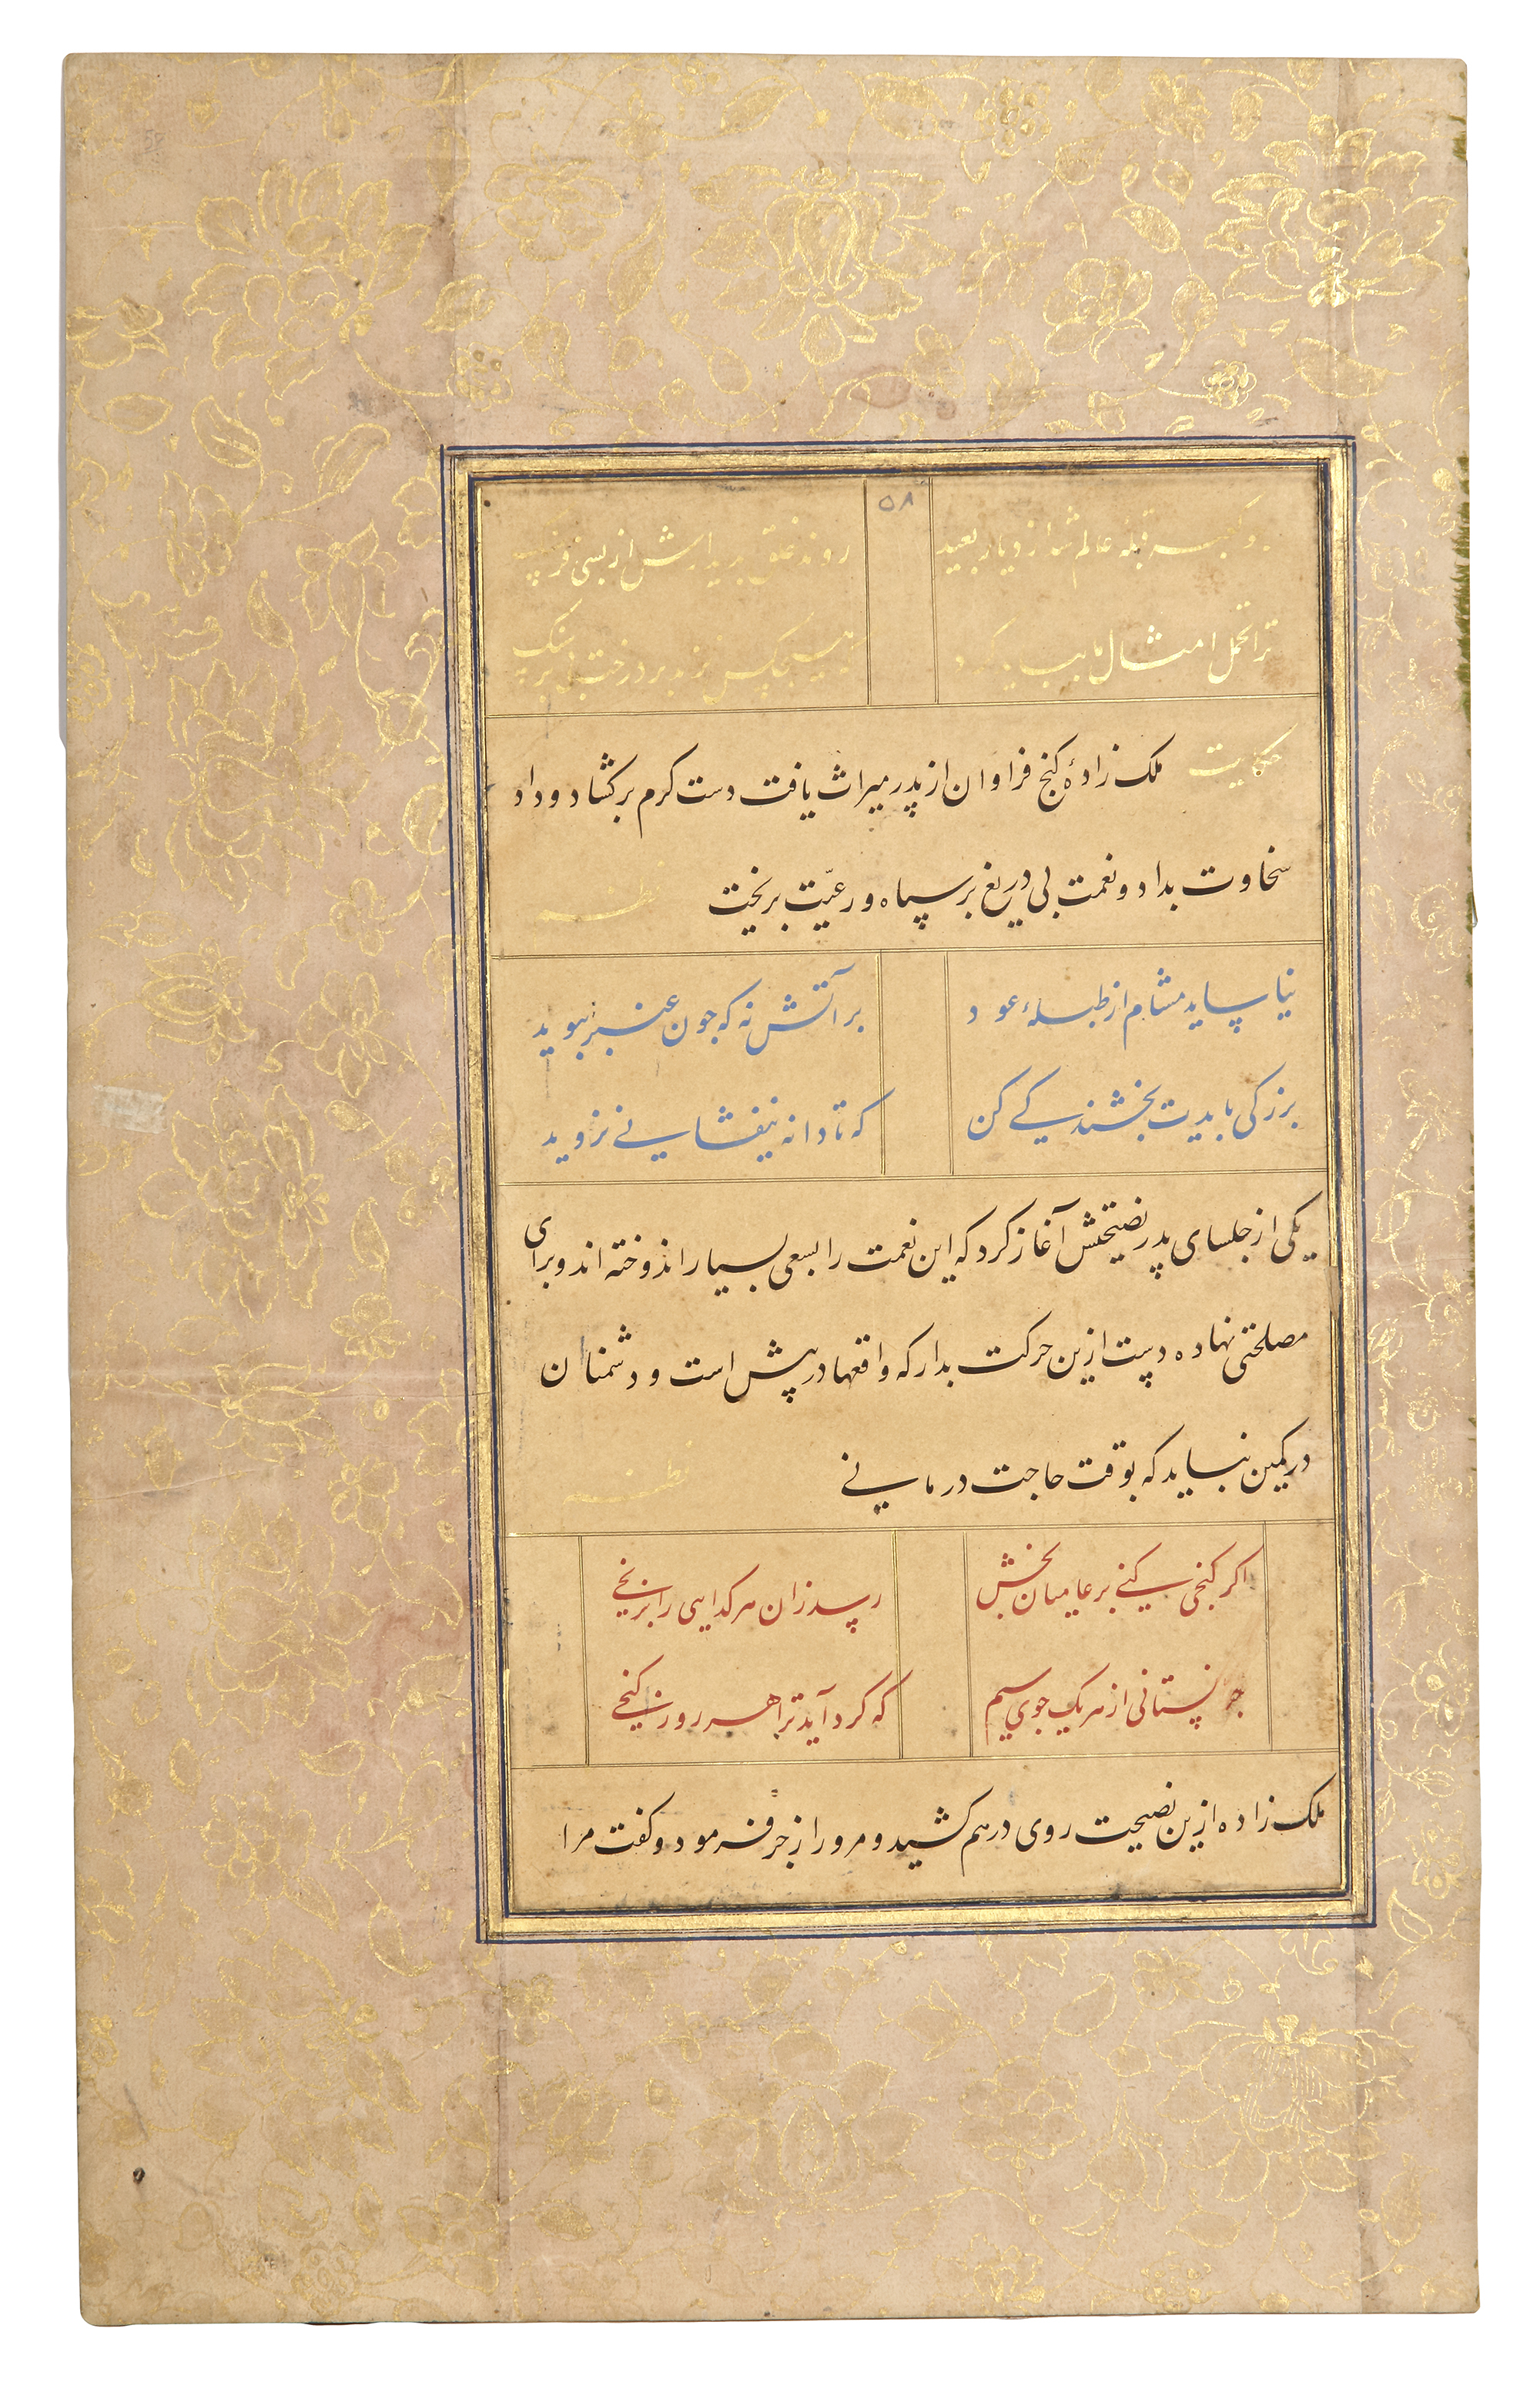 ۵۸
و کعبه قبله عالم شد از دیار بعید روند خلق بدیدارش از بسی فرسنگ
ترا تحمل امثال ما بباید کرد که هیچکس نزند بر درخت بی بر سنگ
حکایت ملک زادهٔ کنج فراوان از پدر میراث یافت دست کرم برکشاد و داد
سخاوت بداد و نعمت بی دریغ بر سپاه و رعیّت بریخت نظم
نیاساید مشام از طبلهٔ عود بر آتش نه که جون عنبر ببوید
بزرکی بایدت بخشندکی کن که تا دانه نیفشانی نروید
یکی از جلسای پدر نصیحتش آغاز کرد که این نعمت را بسعی بسیار اندوخته اند و برای
مصلحتی نهاده دست ازین حرکت بدار که واقعها در پیش است و دشمنان
در کمین نباید که بوقت حاجت در مانی نظم
اکر کنجی کنی بر عامیان بخش رسد زان هر کدایی را برنجی
جرا نستانی از هر یک جوی سیم که کرد آید ترا هر روز کنجی
ملک زاده ازین نصیحت روی درهم کشید و مرو را زجر فرمود و کفت مرا